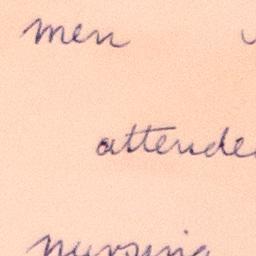 men
attended
nursing